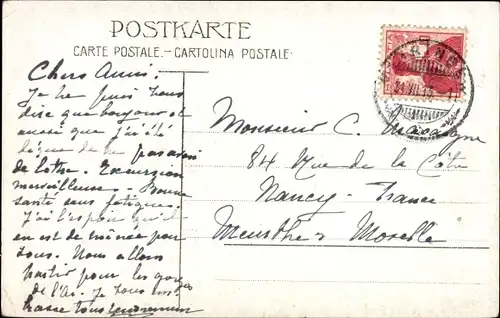 POSTKARTE
CARTE POSTALE.—CARTOLINA POSTALE.
Chers Amis.
Je ne puis vous
dire que bonjour et
aussi que j'ai été
de ne pas avoir
de lettre. Excursion
merveilleuse. Bonne
santé sans fatigue.
J'ai l'espoir qu'il
en est de même pour
vous. Nous allons
partir pour les gorges
de l'Aar. Je vous em-
brasse tous tendrement
Monsieur C.
84 Rue de la Côte
Nancy. France
Meurthe & Moselle